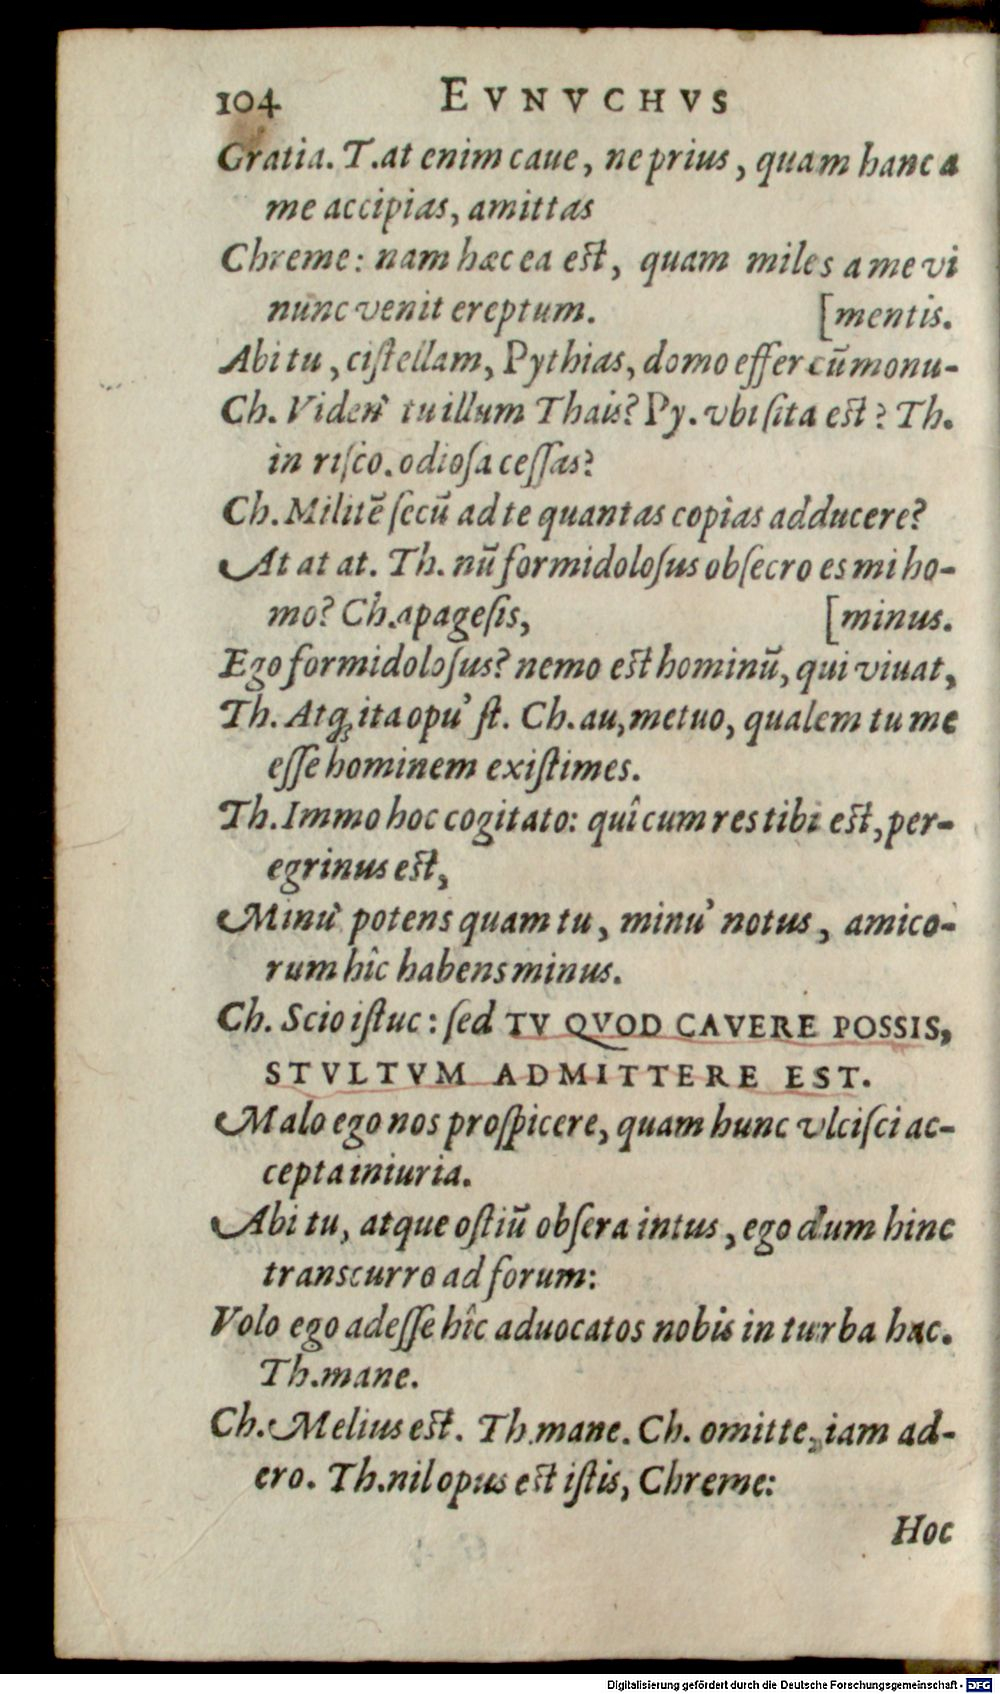 104 EVNVCHVS
Gratia. T.at enim caue, ne prius, quam hanc a
me accipias, amittas
Chreme: nam hæc ea est, quam miles a me vi
nunc venit ereptum. [mentis.
Abi tu, ciſtellam, Pythias, domo effer cũ monu-
Ch. Viden' tu illum Thais? Py. vbi ſita est? Th.
in riſco. odioſa ceſſas?
Ch. Militẽ ſecũ ad te quantas copias adducere?
At at at. Th. nũ formidoloſus obſecro es mi ho-
mo? Ch. apageſis, [minus.
Ego formidoloſus? nemo est hominũ, qui viuat,
Th. Atq; ita opu' ſt. Ch. au, metuo, qualem tu me
eſſe hominem exiſtimes.
Th. Immo hoc cogitato: quîcum res tibi est, per-
egrinus est,
Minu' potens quam tu, minu' notus, amico-
rum hîc habens minus.
Ch. Scio iſtuc: ſed TV QVOD CAVERE POSSIS,
STVLTVM ADMITTERE EST.
Malo ego nos proſpicere, quam hunc vlciſci ac-
cepta iniuria.
Abi tu, atque oſtiũ obſera intus, ego dum hinc
transcurro ad forum:
Volo ego adeſſe hîc aduocatos nobis in turba hac.
Th. mane.
Ch. Melius est. Th. mane. Ch. omitte, iam ad-
ero. Th. nil opus est iſtis, Chreme:
Hoc
Digitalisierung gefördert durch die Deutsche Forschungsgemeinschaft - DFG